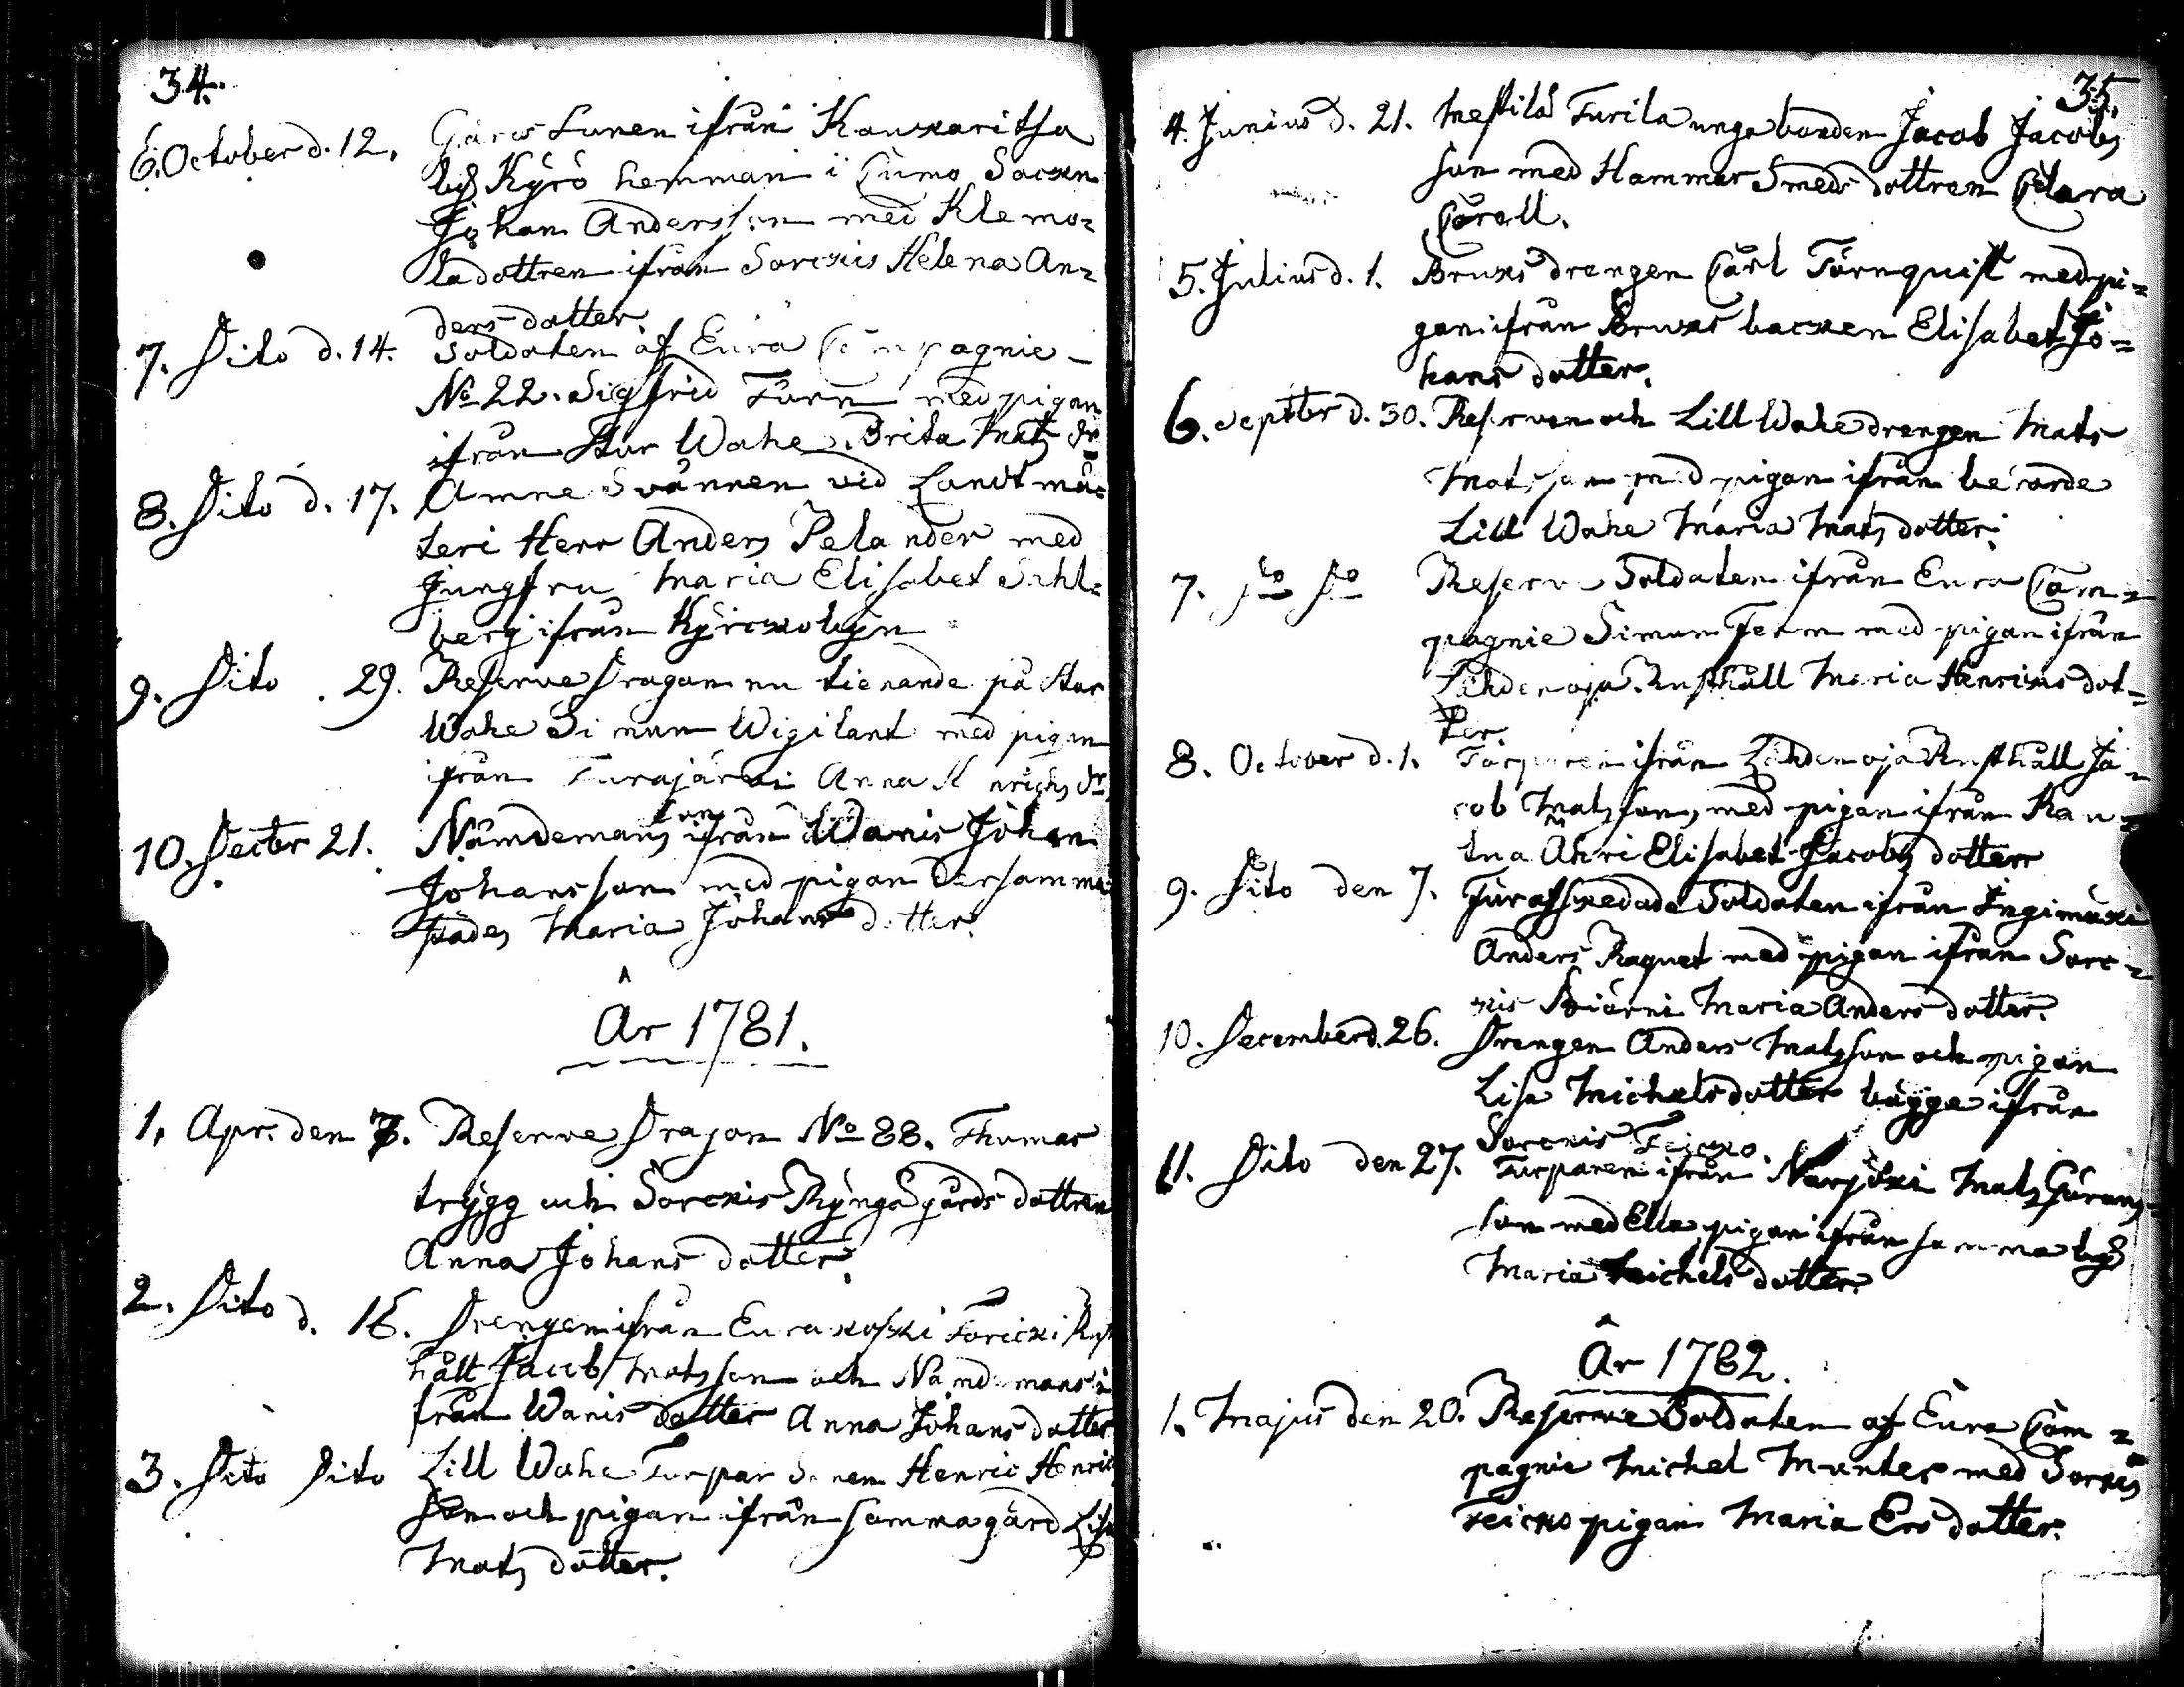 34.
6. October d. 12. Gårds Sonen ifrån Kauxaritsa
by Kyrö hemman i Cumo Sockn
Johan Andersson med Klemo=
la dottren ifrån Sorckis Helena An=
ders dotter.
7. Dito d. 14. Soldaten af Eura Compagnie
No 22. Sigfrid Törn med pigan
ifrån Stor Wahe Brita Mats dr
8. Dito d. 17. Ämne Svännen vid Landtmä
teri Herr Anders Pelander med
Jungfru Maria Elisabet Sahl=
berg ifrån Kyrckobyn
9. Dito . 29. Reserve Dragon nu tienande på Stor
Wahe Simun Wigilant med pigan
ifrån Turajärvi Anna Henrichs dr
10. Decbr 21. Nämdemans son ifrån Wanis Johan
Johansson med pigan därsamma
städes Maria Johans dotter.
År 1781.
1. Apr. den 7. Reserve Dragon No 88. Thomas
trygg och Sorckis Rynga gårds dottren
Anna Johans dotter.
2. Dito d. 18. Drengen ifrån Eurakoski Toricki Rust
håll Jacob Matsson och Nämdemans i
från Wanis dotter Anna Johans dotter
3. Dito Dito Lill Wahe Torpar Sonen Henric Henric
Son och pigan ifrån samma gård Lisa
Mats dotter.
35.
4. Junius d. 21. Mestilä Furila unga bonden Jacob Jacobs
son med Hammar Smeds dottren Clara
Corell.
5. Julius d. 1. Bruks drengen Carl Törnquist med pi=
gan ifrån Bruks backen Elisabet Jo=
hans dotter.
6. Septbr d. 30. Reserven och Lill Wahe drengen Mats
Matsson med pigan ifrån berörde
Lill Wahe Maria Mats dotter.
7. do do Reserve Soldaten ifrån Eura Com=
pagnie Simon Ferm med pigan ifrån
Lähdenoja Rusthåll Maria Henrics dot=
ter.
8. October d. 1. Torparen ifrån Lähdenoja Rusthåll Ja=
cob Matsson, med pigan ifrån Kau=
tua Ahri Elisabet Jacobs dotter
9. Dito den 7. Förafskedade Soldaten ifrån Ingimuxi
Anders Raquet med pigan ifrån Sorc=
kis Biärni Maria Anders dotter.
10. December d. 26. Drengen Anders Matsson och pigan
Lisa Michels dotter bägge ifrån
Sorckis Teicko.
11. Dito den 27. Torparen ifrån Narjoki Mats Görans
son med Ella pigan ifrån samma by
Maria Michels dotter.
År 1782.
1. Majus den 20. Reserve Soldaten af Eura Com=
pagnie Michel Munter med Sorkis
Teicko pigan Maria Ers dotter.